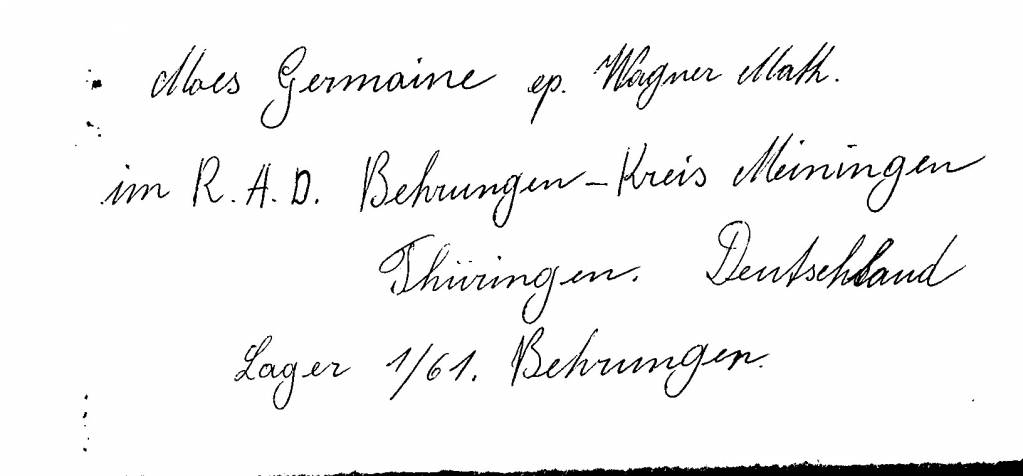 Moes Germaine ep. Wagner Math.
im R.A.D. Behrungen-Kreis Meiningen
Thüringen. Deutschland
Lager 1/61. Behrungen.